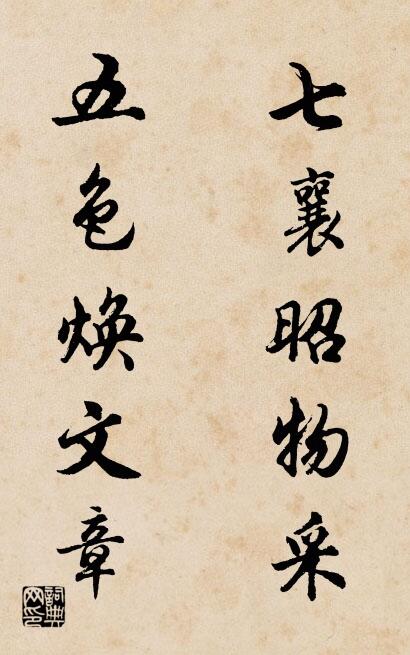 七襄昭物采
五色焕文章
詞典
网印